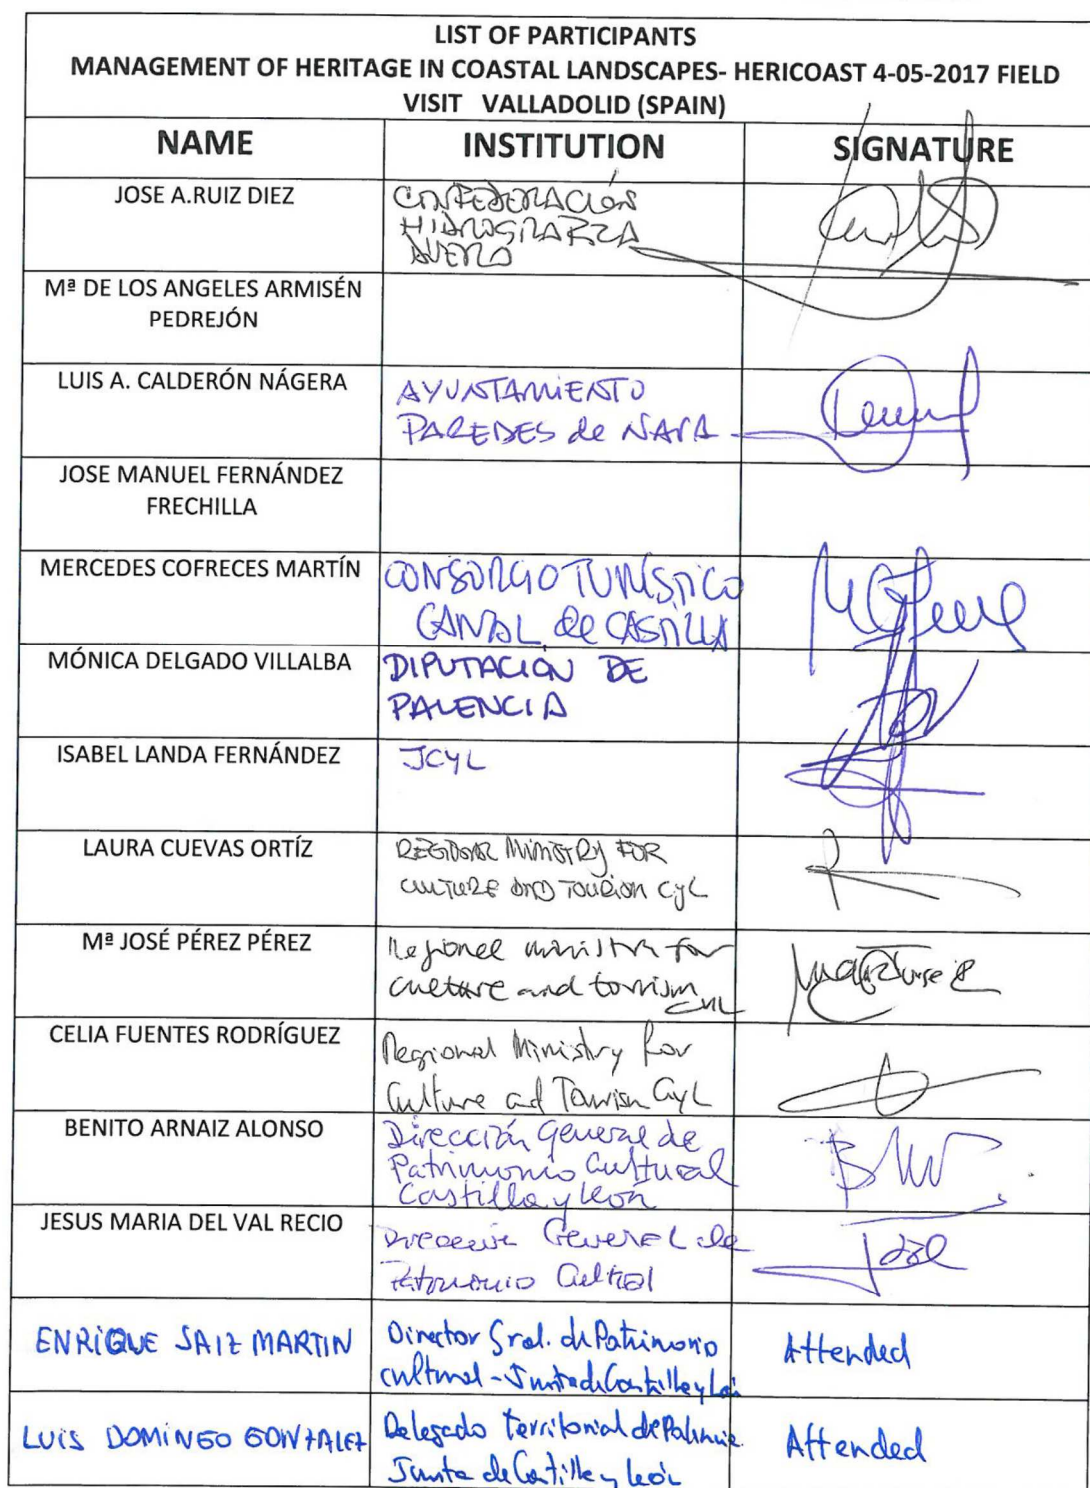 LIST OF PARTICIPANTS
MANAGEMENT OF HERITAGE IN COASTAL LANDSCAPES- HERICOAST 4-05-2017 FIELD
VISIT VALLADOLID (SPAIN)
NAME INSTITUTION SIGNATURE
JOSE A.RUIZ DIEZ
CONFEDERACIÓN
HIDROGRAFICA
DUERO
Mª DE LOS ANGELES ARMISÉN
PEDREJÓN
LUIS A. CALDERÓN NÁGERA
AYUNTAMIENTO
PAREDES de NAVA
JOSE MANUEL FERNÁNDEZ
FRECHILLA
MERCEDES COFRECES MARTÍN
CONSORCIO TURÍSTICO
CANAL de CASTILLA
MÓNICA DELGADO VILLALBA
DIPUTACION DE
PALENCIA
ISABEL LANDA FERNÁNDEZ
JCYL
LAURA CUEVAS ORTÍZ
REGIONAL MINISTRY FOR
CULTURE AND TOURISM CyL
Mª JOSÉ PÉREZ PÉREZ
Regional ministry for
culture and tourism
CYL
CELIA FUENTES RODRÍGUEZ
Regional Ministry for
Culture and Tourism CyL
BENITO ARNAIZ ALONSO
Dirección General de
Patrimonio Cultural
Castilla y León
JESUS MARIA DEL VAL RECIO
Dirección General de
Patrimonio Cultural
ENRIQUE SAIZ MARTIN
Director Gral. de Patrimonio
cultural - Junta de Castilla y León
Attended
LUIS DOMINGO GONZALEZ
Delegado territorial de Palencia.
Junta de Castilla y León
Attended